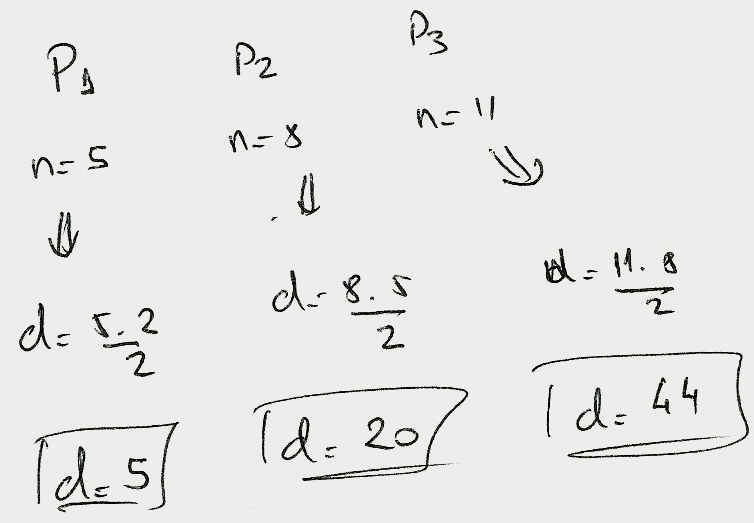 P1
n=5
d= 5.2/2
d=5
P2
n=8
d= 8.5/2
d= 20
P3
n=11
d= 11.8/2
d= 44